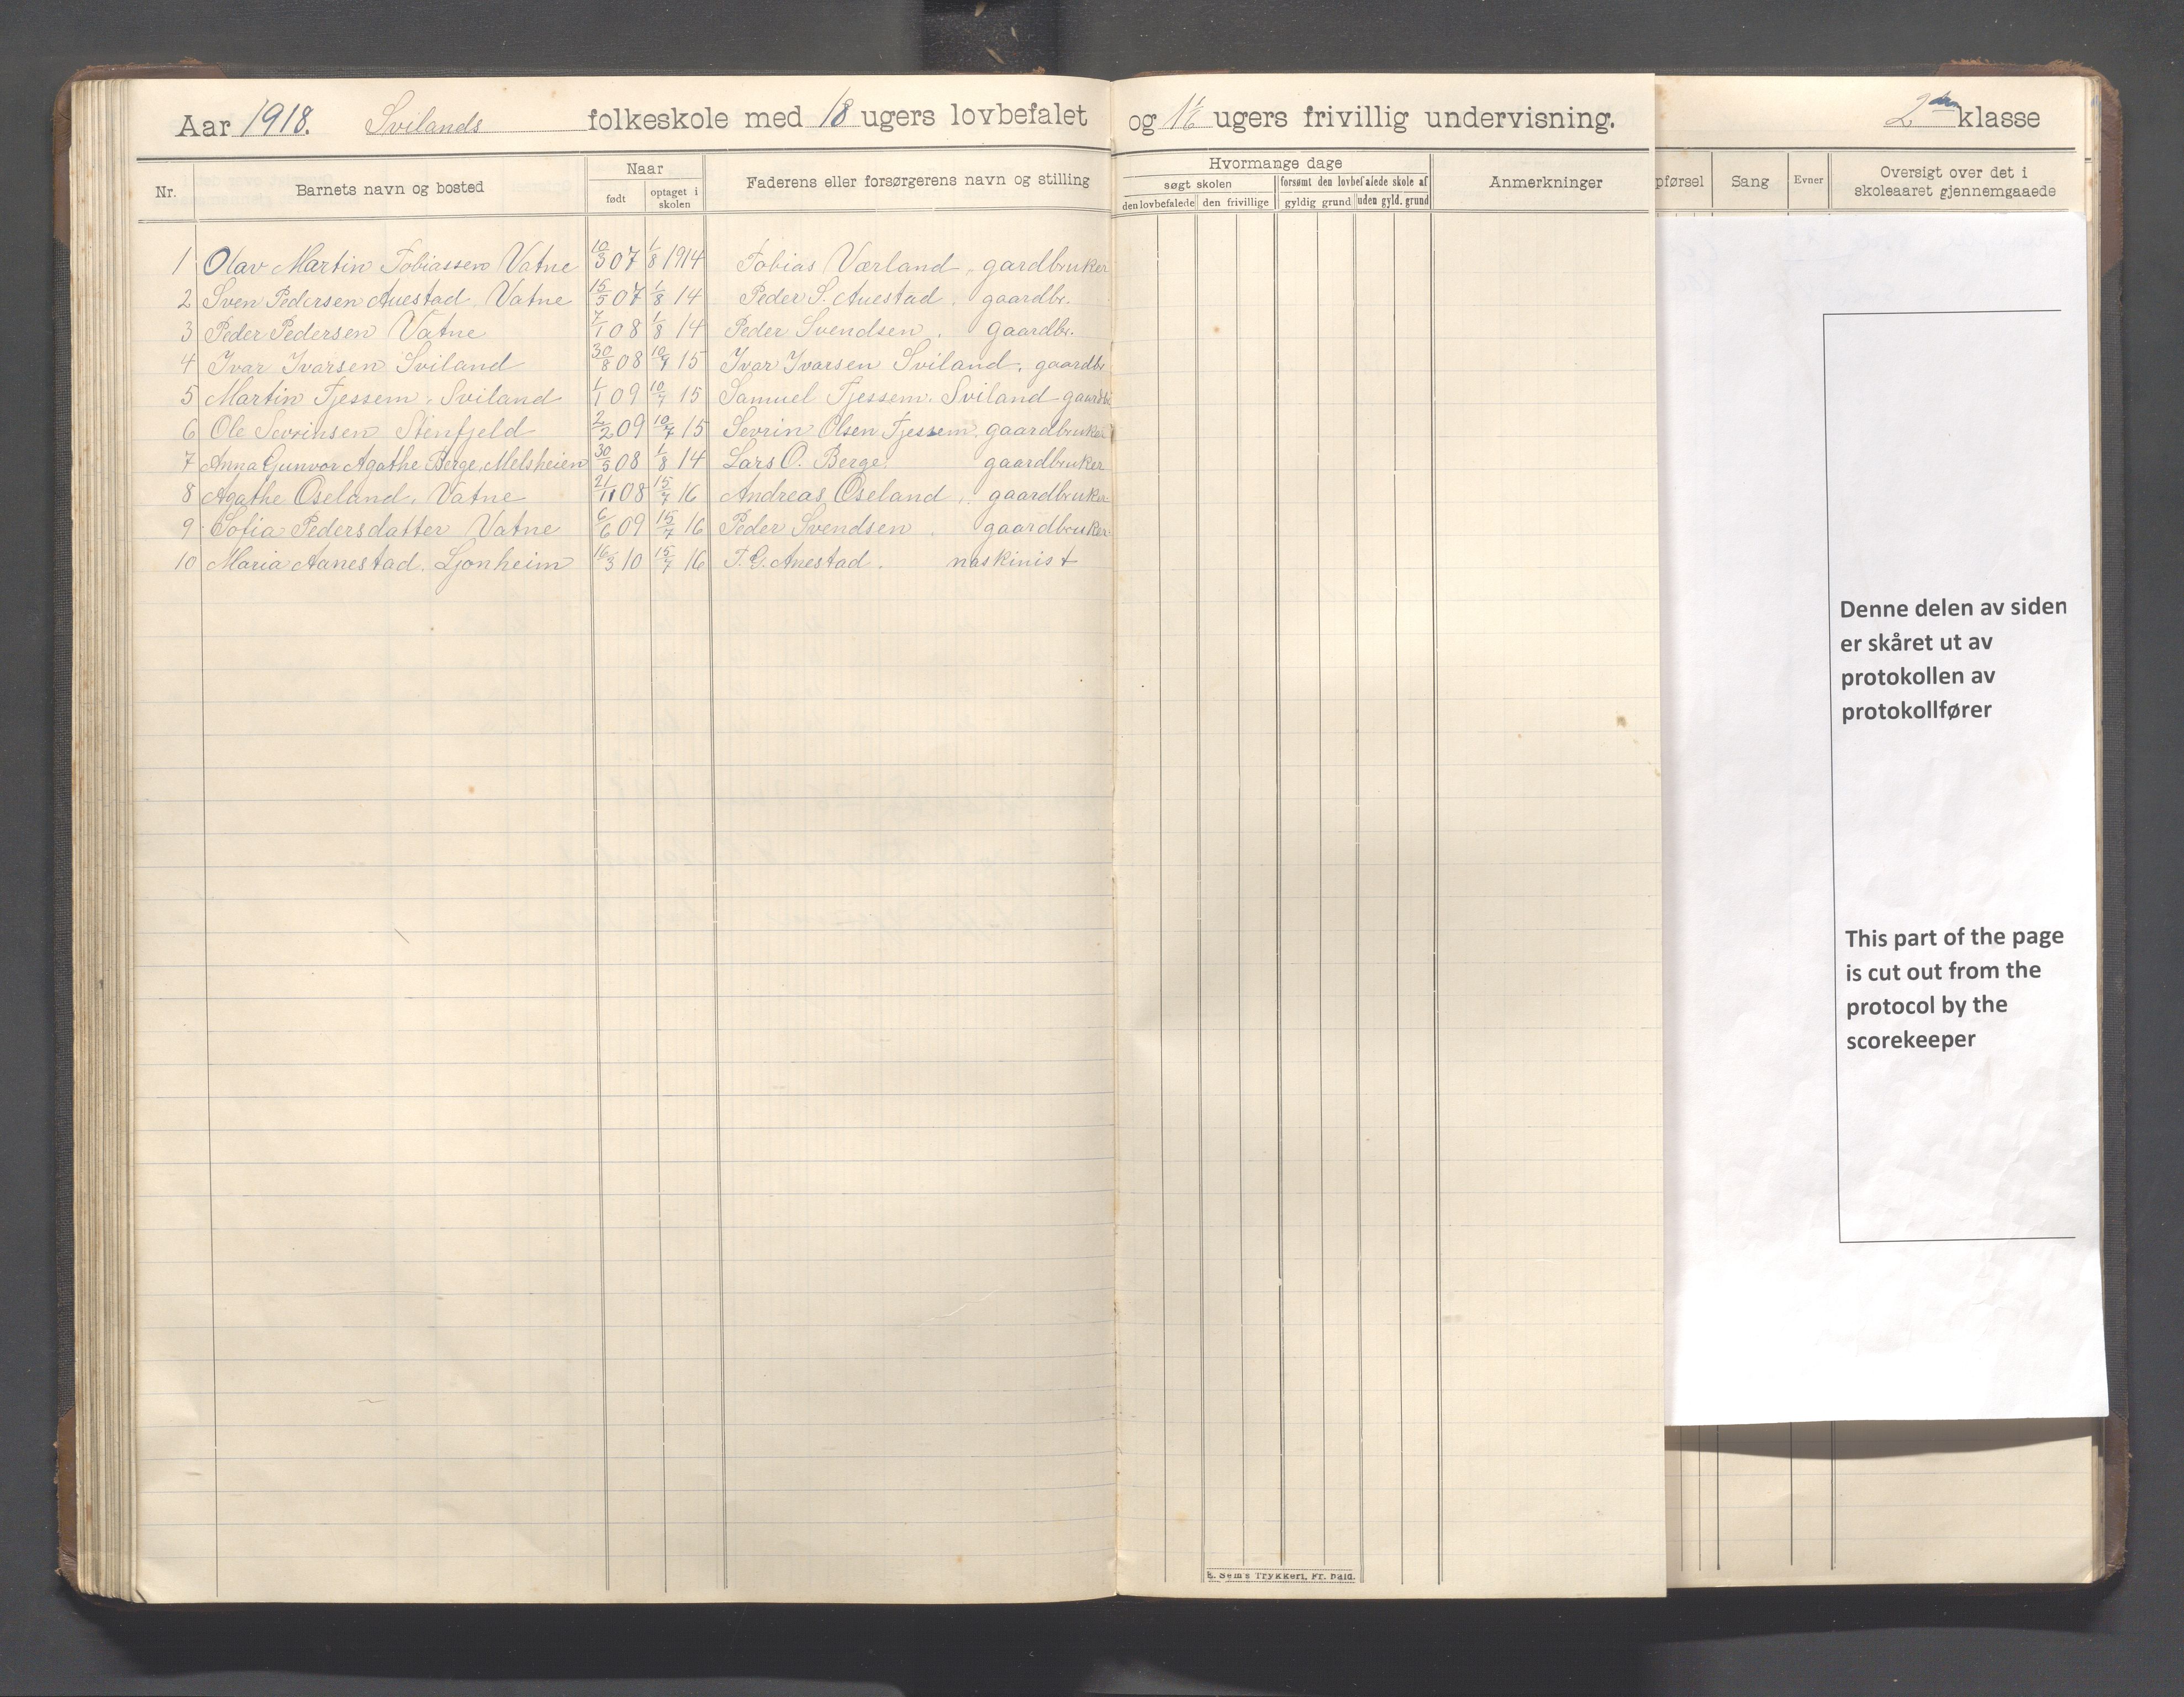 Aar 1918. Svilands folkeskole med 18 ugers lovbefalet og 1 1/6 ugers frivillig undervisning. 2den klasse
Nr. Barnets navn og bosted Naar født optaget i skolen Faderens eller forsørgerens navn og stilling Hvormange dage søgt skolen den lovbefalede den frivillige forsømt den lovbefalede skole af gyldig grund uden gyld. grund Anmerkninger pførsel Sang Evner Oversigt over det i skoleaaret gjennemgaaede
1 Olav Martin Tobiassen Vatne 10/3 07 1/8 1914 Tobias Værland, gardbruker
2 Sven Pedersen Auestad, Vatne 15/5 07 1/8 14 Peder S. Auestad, gaardbr.
3 Peder Pedersen Vatne 7/1 08 1/8 14 Peder Svendsen, gaardbr.
4 Ivar Ivarsen Sviland 30/8 08 10/7 15 Ivar Ivarsen Sviland, gaardbr
5 Martin Tjessem, Sviland 1/1 09 10/7 15 Samuel Tjessem, Sviland gaardbr
6 Ole Sevrinsen Stenfjeld 2/2 09 10/7 15 Sevrin Olsen Tjessem, gaardbruker
7 Anna Gunvor Agathe Berge, Melsheien 30/5 08 1/8 14 Lars O. Berge, gaardbruker
8 Agathe Oseland, Vatne 21/11 08 15/7 16 Andreas Oseland, gaardbruker
9 Sofia Pedersdatter Vatne 6/6 09 15/7 16 Peder Svendsen, gaardbruker
10 Maria Aanestad, Ljonheim 16/3 10 15/7 16 T. G. Anestad. maskinist
E. Sem's Trykkeri, Fr.hald.
Denne delen av siden
er skåret ut av
protokollen av
protokollfører
This part of the page
is cut out from the
protocol by the
scorekeeper